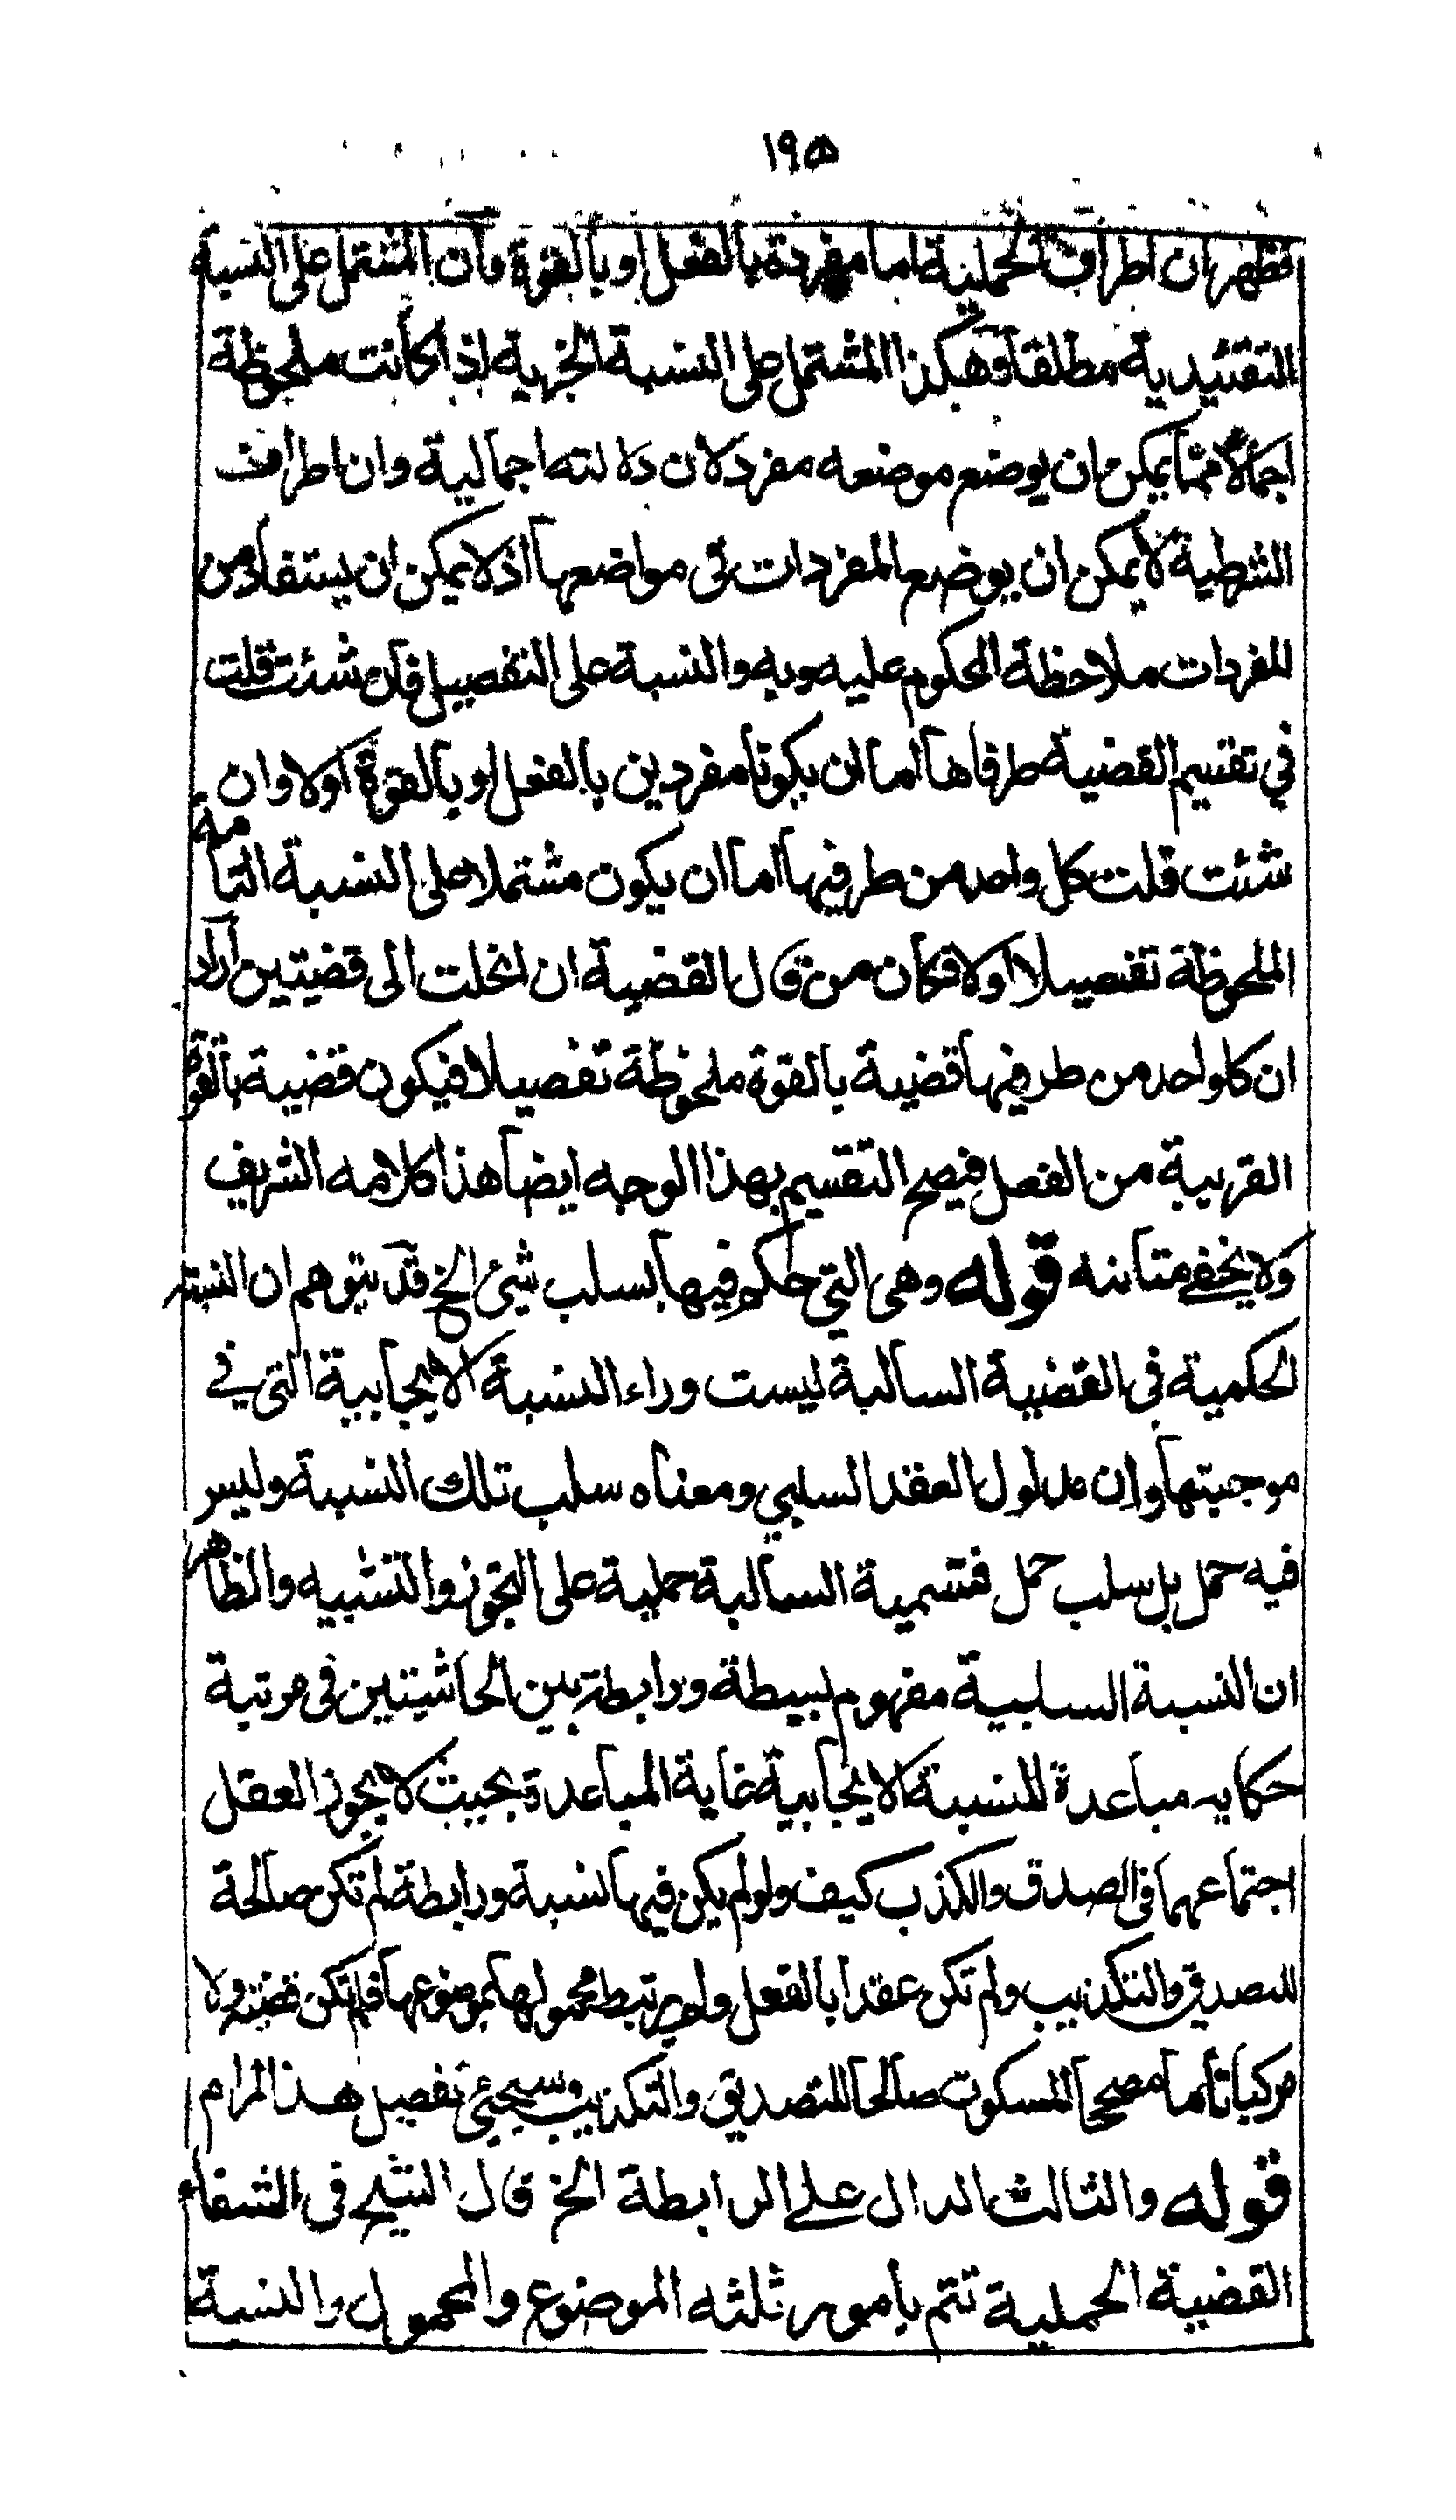 ١٩٥
فظهر ان اطراف الحملية اما مفردة بالفعل او بالقوة فان المشتمل على النسبة
التقئيدية مطلقا وهكذا المشتمل على النسبة الخبرية اذا كانت ملحوظة
اجمالا مما يمكن ان يوضع موضعه مفرد لان دلالته اجمالية وان اطراف
الشرطية لا يمكن ان يوضع المفردات فى مواضعها اذ لا يمكن ان يستفاد من
المفردات ملاحظة المحكوم عليه وبه والنسبة على التفصيل فان شئت قلت
في تقسيم القضية طرفاها اما ان يكونا مفردين بالفعل او بالقوة اولا وان
شئت قلت كل واحد من طرفيها اما ان يكون مشتملا على النسبة التامة
الملحوظة تفصيلا اولا فكان من قال القضية ان انحلت الى قضيتين اراد
ان كل واحد من طرفيها قضية بالقوة ملحوظة تفصيلا فيكون قضية بالقوة
القريبة من الفعل فيصح التقسيم بهذا الوجه ايضا هذا كلامه الشريف
ولا يخفى متانته قوله وهى التى حكم فيها بسلب شئ الخ قد يتوهم ان النسبة
الحكمية فى القضية السالبة ليست وراء النسبة الايجابية التى في
موجبتها وان مدلول العقد السلبي ومعناه سلب تلك النسبة وليس
فيه حمل بل سلب حمل فتسمية السالبة حملية على التجوز والتشبيه والظاهر
ان النسبة السلبية مفهوم بسيطة ورابطة بين الحاشيتين فى مرتبة
حكايه مباعدة للنسبة الايجابية غاية المباعدة بحيث لا يجوز العقل
اجتماعهما فى الصدق والكذب كيف ولو لم يكن فيها نسبة ورابطة لم تكن صالحة
للتصديق والتكذيب ولم تكن عقدا بالفعل ولم يرتبط محمولها بموضوعها فلم تكن قضية ولا
مركبا تاما مصححا للسكوت صالحا للتصديق والتكذيب وسيجئ تفصيل هذا المرام
قوله والثالث الدال على الرابطة الخ قال الشيخ فى الشفاء
القضية الحملية تتم بامور ثلثه الموضوع والمحمول والنسبة